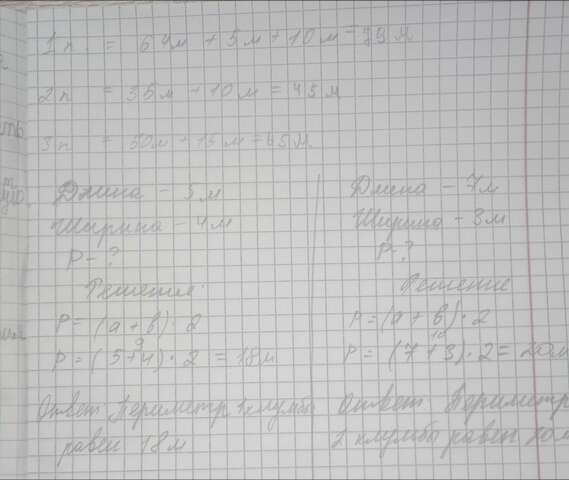 1п = 64м + 5м + 10м = 79м
2п = 35м + 10м = 45м
3п = 50м + 15м = 65м
Длина - 5м
Ширина - 4м
P - ?
Решение:
P = (a + b) · 2
9
P = (5+4) · 2 = 18м
Ответ Периметр 1 клумбы
равен 18м
Длина - 7м
Ширина - 3м
P - ?
Решение
P = (a + b) · 2
10
P = (7+3) · 2 = 20м
Ответ Периметр
2 клумбы равен 20м